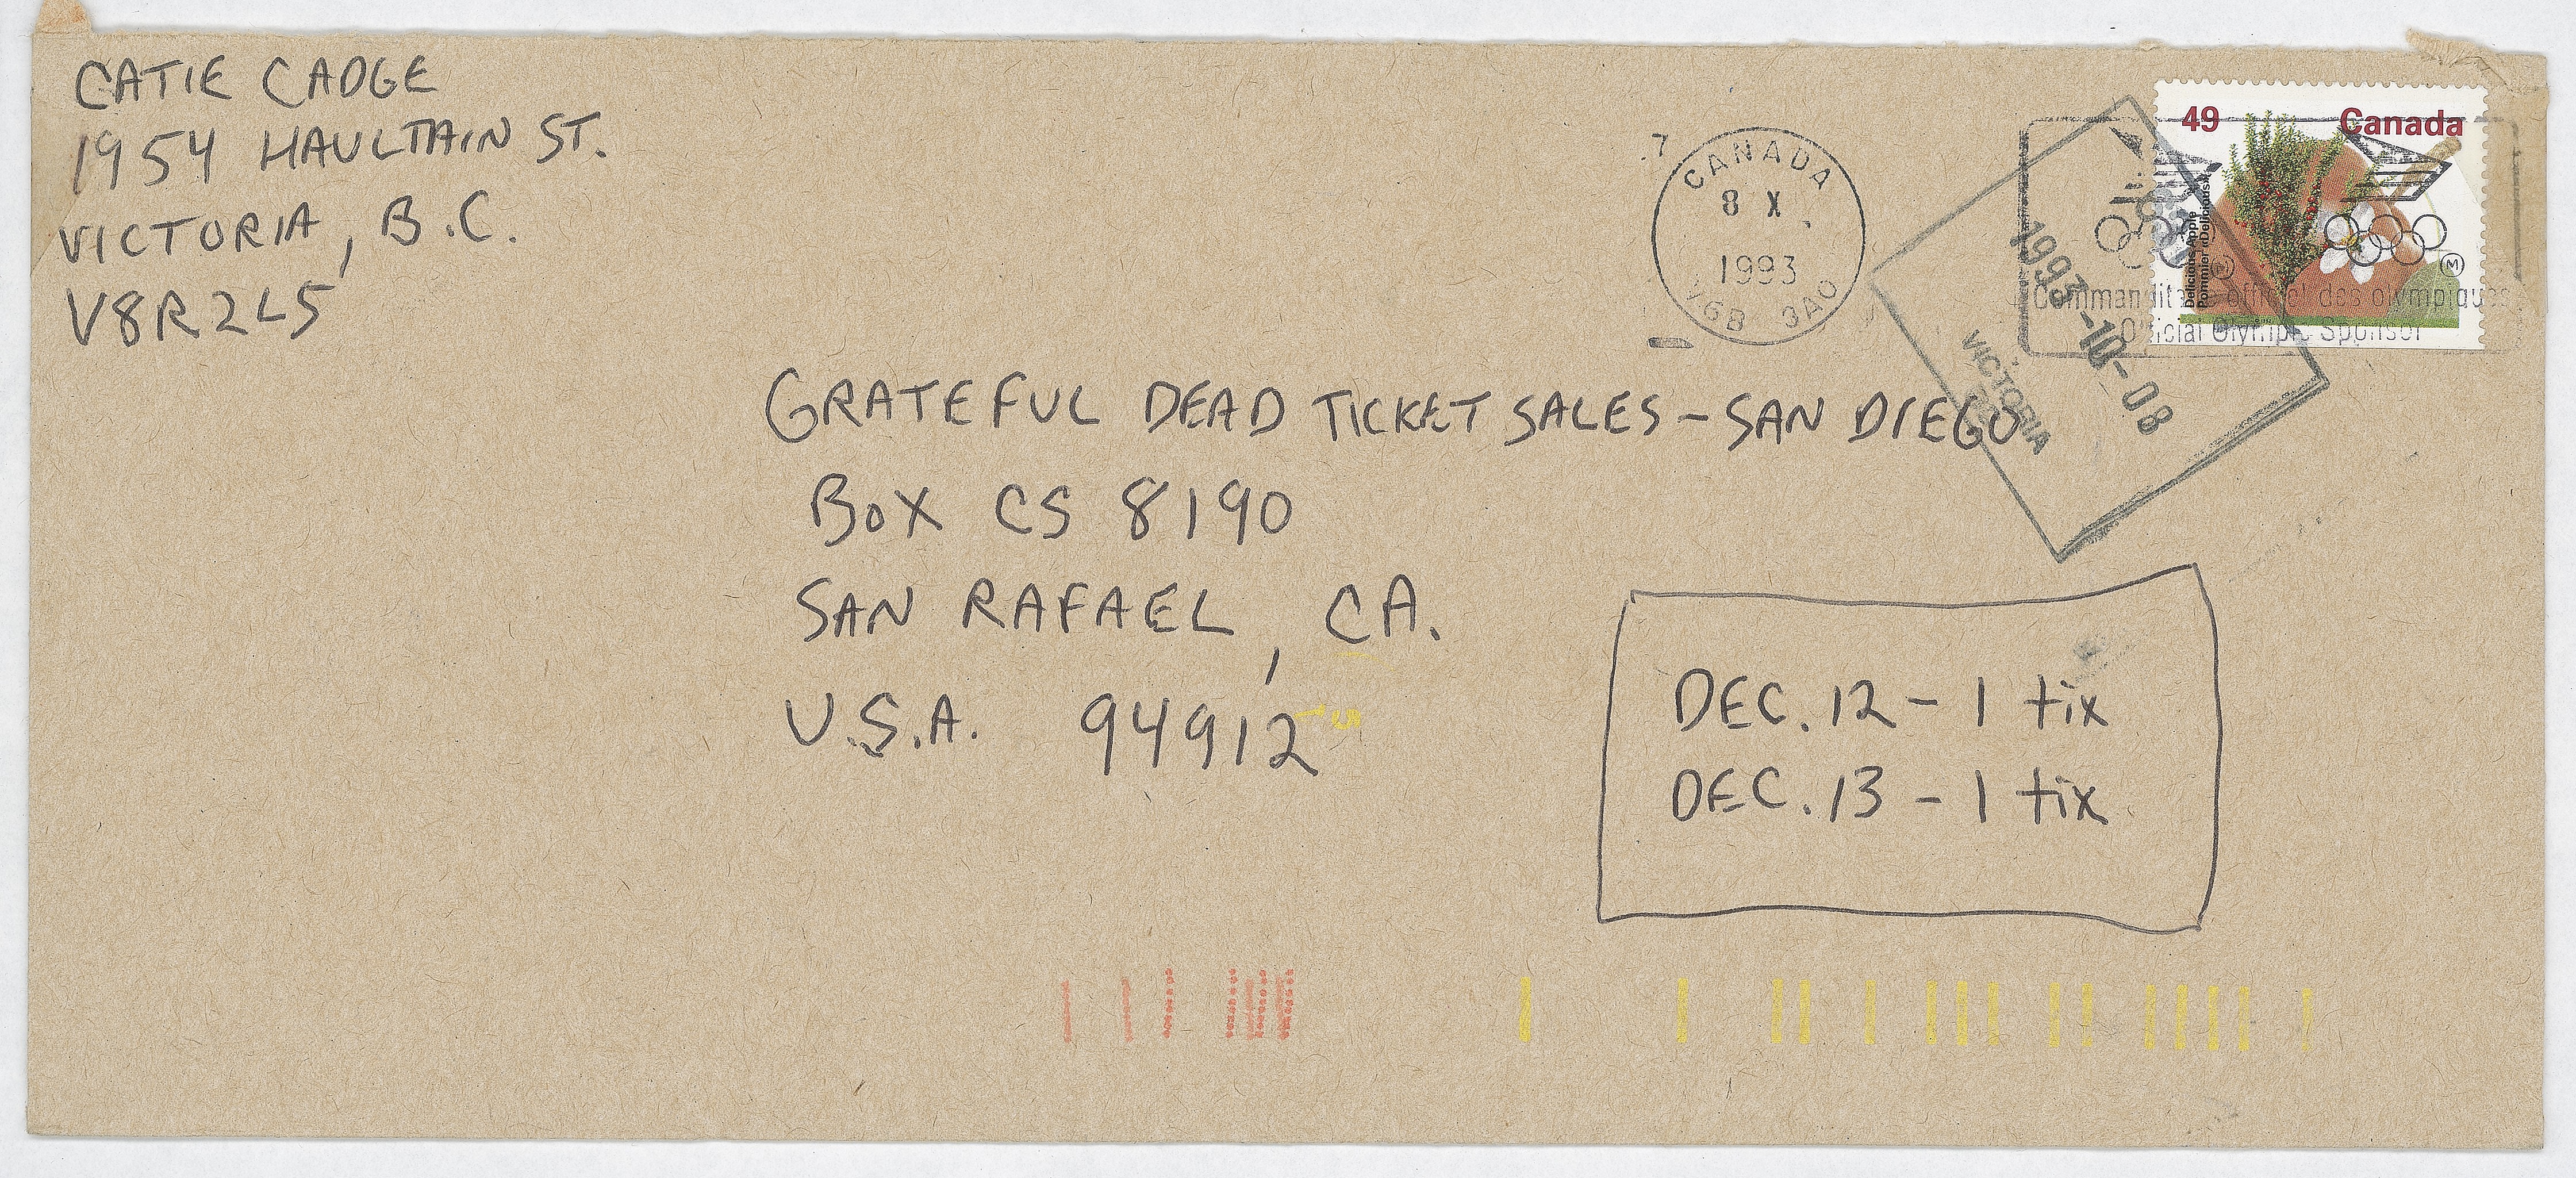 CATIE CADGE
1954 HAULTAIN ST.
VICTORIA, B.C.
V8R2L5
CANADA
8 X
1993
V6B 3A0
49 Canada
Delicious Apple
Pommier «Delicious»
M M
Commanditaire officiel des olympiques
Official Olympic Sponsor
1993-10-08
VICTORIA
GRATEFUL DEAD TICKET SALES - SAN DIEGO
BOX CS 8190
SAN RAFAEL, CA.
U.S.A. 94912
DEC. 12 - 1 tix
DEC. 13 - 1 tix